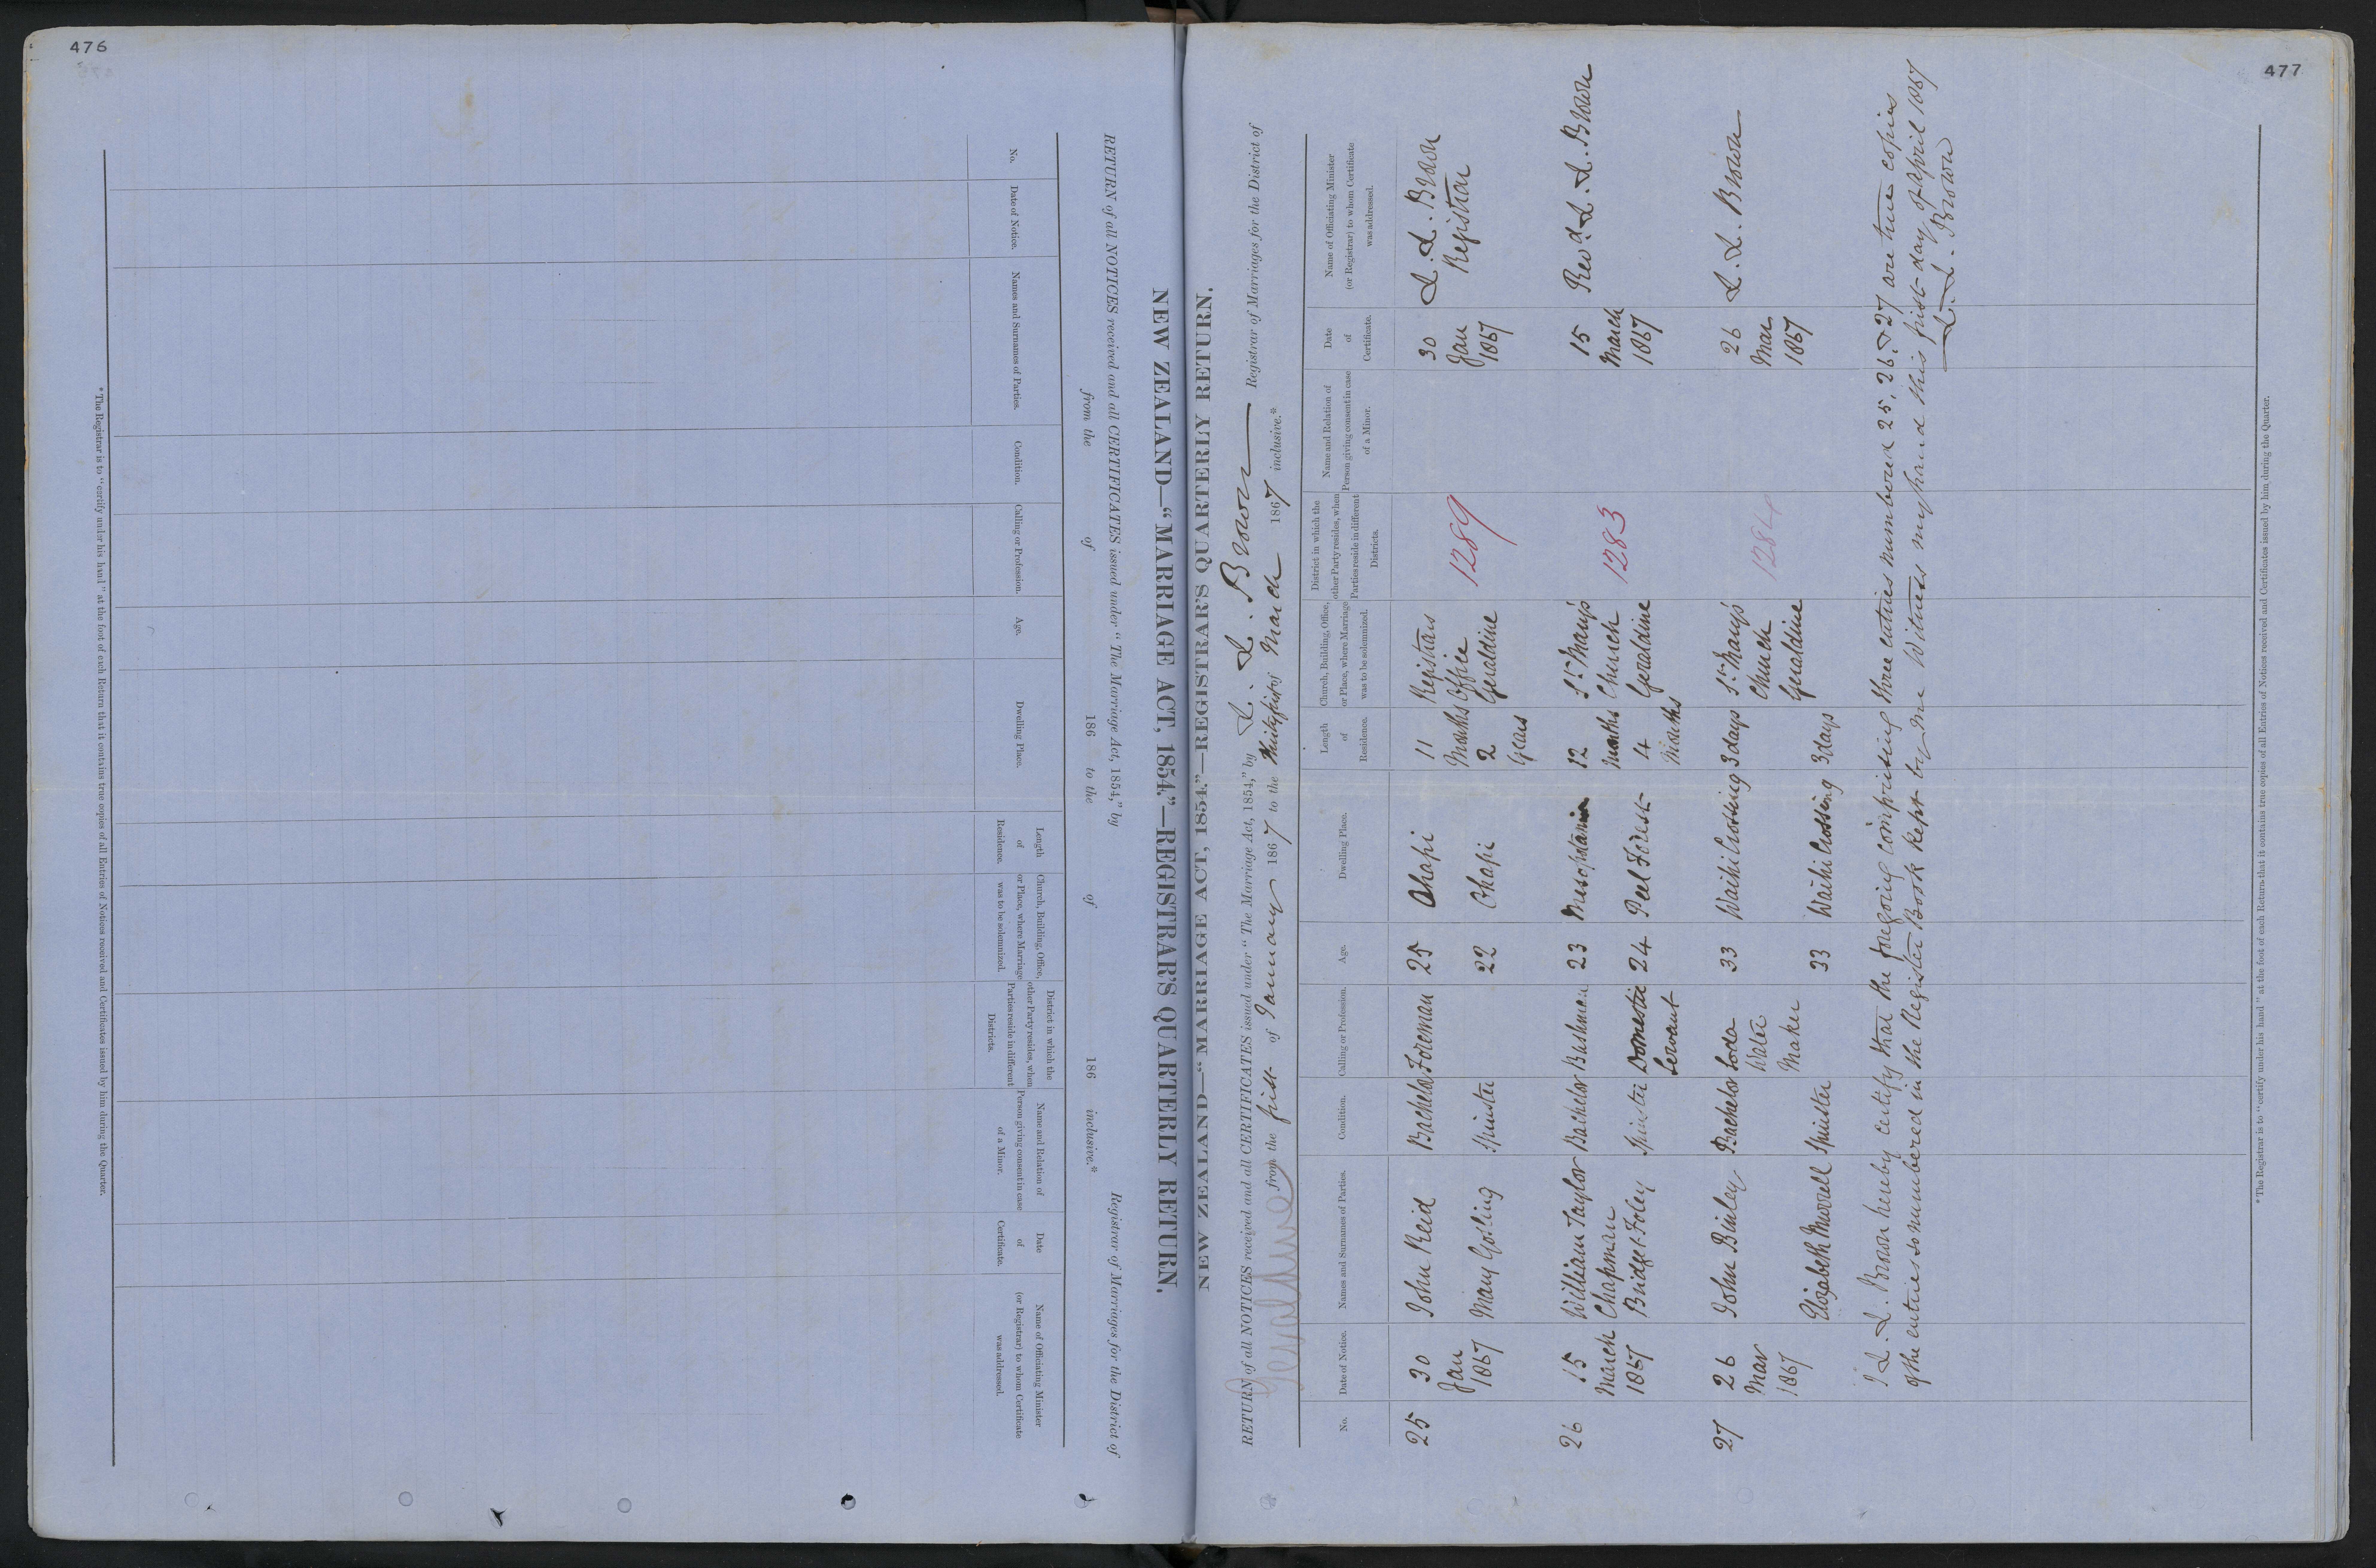 476
NEW ZEALAND—“MARRIAGE ACT, 1854.”—REGISTRAR'S QUARTERLY RETURN.
RETURN of all NOTICES received and all CERTIFICATES issued under “The Marriage Act, 1854,” by Registrar of Marriages for the District of
from the of 186 to the of 186 inclusive.*
No.
Date of Notice.
Names and Surnames of Parties.
Condition.
Calling or Profession.
Age.
Dwelling Place.
Length of Residence.
Church, Building, Office, or Place, where Marriage was to be solemnized.
District in which the other Party resides, when Parties reside in different Districts.
Name and Relation of Person giving consent in case of a Minor.
Date of Certificate.
Name of Officiating Minister (or Registrar) to whom Certificate was addressed.
*The Registrar is to “certify under his hand” at the foot of each Return that it contains true copies of all Entries of Notices received and Certificates issued by him during the Quarter.
477
NEW ZEALAND—“MARRIAGE ACT, 1854.”—REGISTRAR'S QUARTERLY RETURN.
RETURN of all NOTICES received and all CERTIFICATES issued under “The Marriage Act, 1854,” by L. L. Brown Registrar of Marriages for the District of
Geraldine from the first of January 1867 to the thirtyfirst of March 1867 inclusive.*
No.
Date of Notice.
Names and Surnames of Parties.
Condition.
Calling or Profession.
Age.
Dwelling Place.
Length of Residence.
Church, Building, Office, or Place, where Marriage was to be solemnized.
District in which the other Party resides, when Parties reside in different Districts.
Name and Relation of Person giving consent in case of a Minor.
Date of Certificate.
Name of Officiating Minister (or Registrar) to whom Certificate was addressed.
25 30 Jan 1867 John Reid Bachelor Foreman 25 Ohapi 11 Months Registrars Office Geraldine 1289 30 Jan 1867 L. L. Brown Registrar
Mary Gosling Spinster 22 Ohapi 2 Years
26 15 March 1867 William Taylor Chapman Bachelor Bushman 23 Mesopotamia 12 months St. Mary's Church Geraldine 1283 15 March 1867 Revd. L. L. Brown
Bridget Foley Spinster Domestic Servant 24 Peel Forest 4 Months
27 26 Mar 1867 John Binley Bachelor Soda Water Maker 33 Waihi Crossing 3 days St. Mary's Church Geraldine 1284 26 Mar 1867 L. L. Brown
Elizabeth Morrell Spinster 33 Waihi Crossing 3 days
I L. L. Brown hereby certify that the foregoing comprising three entries numbered 25, 26, & 27 are true copies
of the entries so numbered in the Register Book kept by me Witness my hand this first day of April 1867
L. L. Brown
*The Registrar is to “certify under his hand” at the foot of each Return that it contains true copies of all Entries of Notices received and Certificates issued by him during the Quarter.